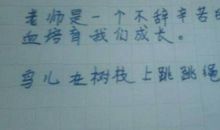 老师是一个不辞辛苦
血培育我们成长。
鸟儿在树枝上跳跳绳